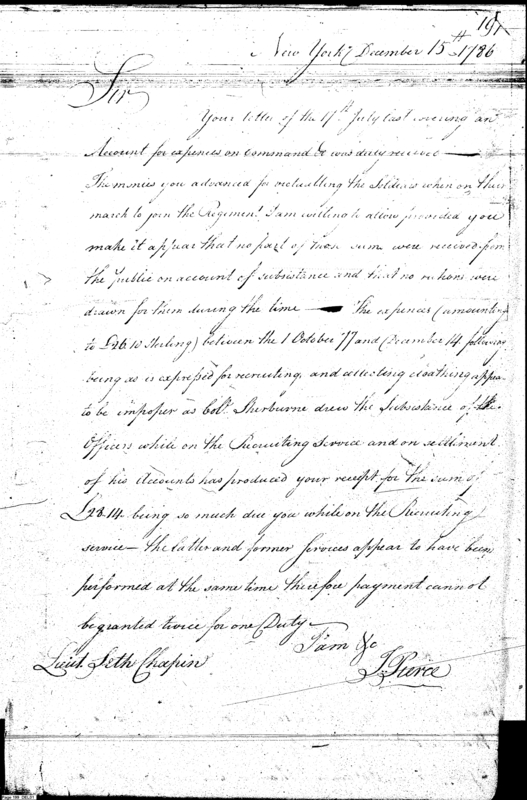 197
New York, December 15th 1786
Sir
Your letter of the 17th July last covering an
Account for expences on command &c was duly received —
The monies you advanced for victualling the Soldiers when on their
march to join the Regiment, I am willing to allow provided you
make it appear that no part of those sums were received from
the public on account of subsistance and that no rations were
drawn for them during the time — The expences (amounting
to £26.10 Sterling) between the 1 October 77 and December 14. following
being as is expressed for recruiting, and attesting cloathing appear
to be improper as Colo. Sherburne drew the Subsistance of the
Officers while on the Recruiting Service and on settlement
of his Accounts has produced your receipt for the sum of
£28.14 being so much due you while on the Recruiting
service — the latter and former services appear to have been
performed at the same time therefore payment cannot
be granted twice for one Duty —
I am &c
Lieut. Seth Chapin
J. Pierce